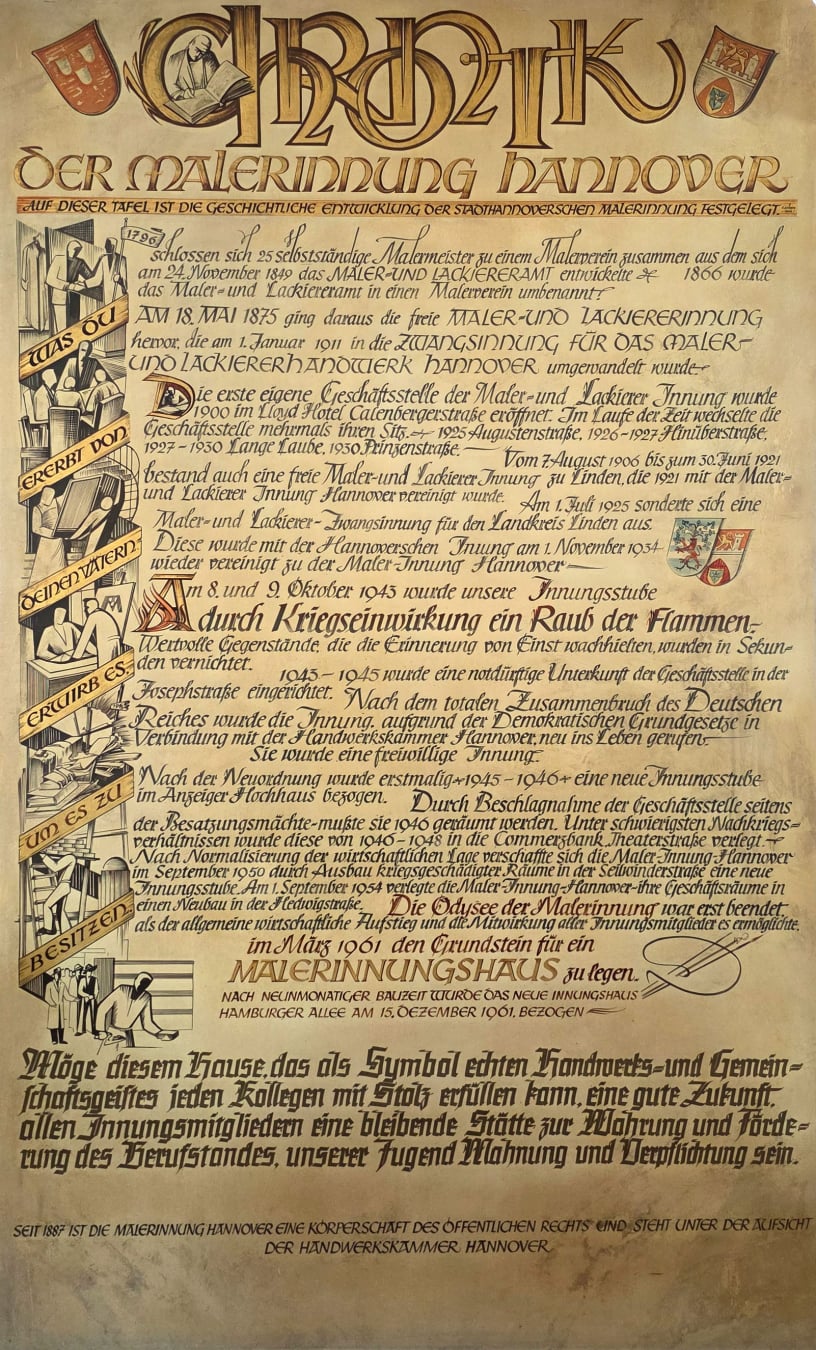 CHRONIK
DER MALERINNUNG HANNOVER
AUF DIESER TAFEL IST DIE GESCHICHTLICHE ENTWICKLUNG DER STADTHANNOVERSCHEN MALERINNUNG FESTGELEGT.
1796
schlossen sich 25 selbstständige Malermeister zu einem Malerverein zusammen aus dem sich
am 24. November 1849 das MALER-UND LACKIERERAMT entwickelte 1866 wurde
das Maler-und Lackiereramt in einen Malerverein umbenannt
AM 18. MAI 1875 ging daraus die freie MALER-UND LACKIERERINNUNG
hervor, die am 1. Januar 1911 in die ZWANGSINNUNG FÜR DAS MALER-
UND LACKIERERHANDWERK HANNOVER umgewandelt wurde
Die erste eigene Geschäftsstelle der Maler-und Lackierer Innung wurde
1900 im Lloyd Hotel Calenbergerstraße eröffnet. Im Laufe der Zeit wechselte die
Geschäftsstelle mehrmals ihren Sitz. 1925 Augustenstraße, 1926-1927 Hinüberstraße,
1927-1930 Lange Laube, 1930 Prinzenstraße.
Vom 7. August 1906 bis zum 30. Juni 1921
bestand auch eine freie Maler-und Lackierer Innung zu Linden, die 1921 mit der Maler-
und Lackierer Innung Hannover vereinigt wurde. Am 1. Juli 1925 sonderte sich eine
Maler-und Lackierer-Zwangsinnung für den Landkreis Linden aus.
Diese wurde mit der Hannoverschen Innung am 1. November 1934
wieder vereinigt zu der Maler-Innung Hannover
Am 8. und 9. Oktober 1943 wurde unsere Innungsstube
durch Kriegseinwirkung ein Raub der Flammen.
Wertvolle Gegenstände, die die Erinnerung von Einst wachhielten, wurden in Sekun-
den vernichtet. 1943-1945 wurde eine notdürftige Unterkunft der Geschäftsstelle in der
Josephstraße eingerichtet. Nach dem totalen Zusammenbruch des Deutschen
Reiches wurde die Innung, aufgrund der Demokratischen Grundgesetze in
Verbindung mit der Handwerkskammer Hannover, neu ins Leben gerufen.
Sie wurde eine freiwillige Innung.
Nach der Neuordnung wurde erstmalig 1945-1946 eine neue Innungsstube
im Anzeiger Hochhaus bezogen. Durch Beschlagnahme der Geschäftsstelle seitens
der Besatzungsmächte-mußte sie 1946 geräumt werden. Unter schwierigsten Nachkriegs=
verhältnissen wurde diese von 1946-1948 in die Commerzbank, Theaterstraße verlegt.
Nach Normalisierung der wirtschaftlichen Lage verschaffte sich die Maler-Innung-Hannover
im September 1950 durch Ausbau kriegsgeschädigter Räume in der Seilwinderstraße eine neue
Innungsstube. Am 1. September 1954 verlegte die Maler-Innung-Hannover-ihre Geschäftsräume in
einen Neubau in der Hedwigstraße. Die Odysee der Malerinnung war erst beendet,
als der allgemeine wirtschaftliche Aufstieg und die Mitwirkung aller Innungsmitglieder es ermöglichte,
im März 1961 den Grundstein für ein
MALERINNUNGSHAUS zu legen.
NACH NEUNMONATIGER BAUZEIT WURDE DAS NEUE INNUNGSHAUS
HAMBURGER ALLEE AM 15. DEZEMBER 1961, BEZOGEN
WAS DU
ERERBT VON
DEINEN VÄTERN
ERWIRB ES,
UM ES ZU
BESITZEN.
Möge diesem Hause, das als Symbol echten Handwerks=und Gemein=
schaftsgeistes jeden Kollegen mit Stolz erfüllen kann, eine gute Zukunft,
allen Innungsmitgliedern eine bleibende Stätte zur Wahrung und Förde=
rung des Berufstandes, unserer Jugend Mahnung und Verpflichtung sein.
SEIT 1887 IST DIE MALERINNUNG HANNOVER EINE KÖRPERSCHAFT DES ÖFFENTLICHEN RECHTS UND STEHT UNTER DER AUFSICHT
DER HANDWERKSKAMMER HANNOVER